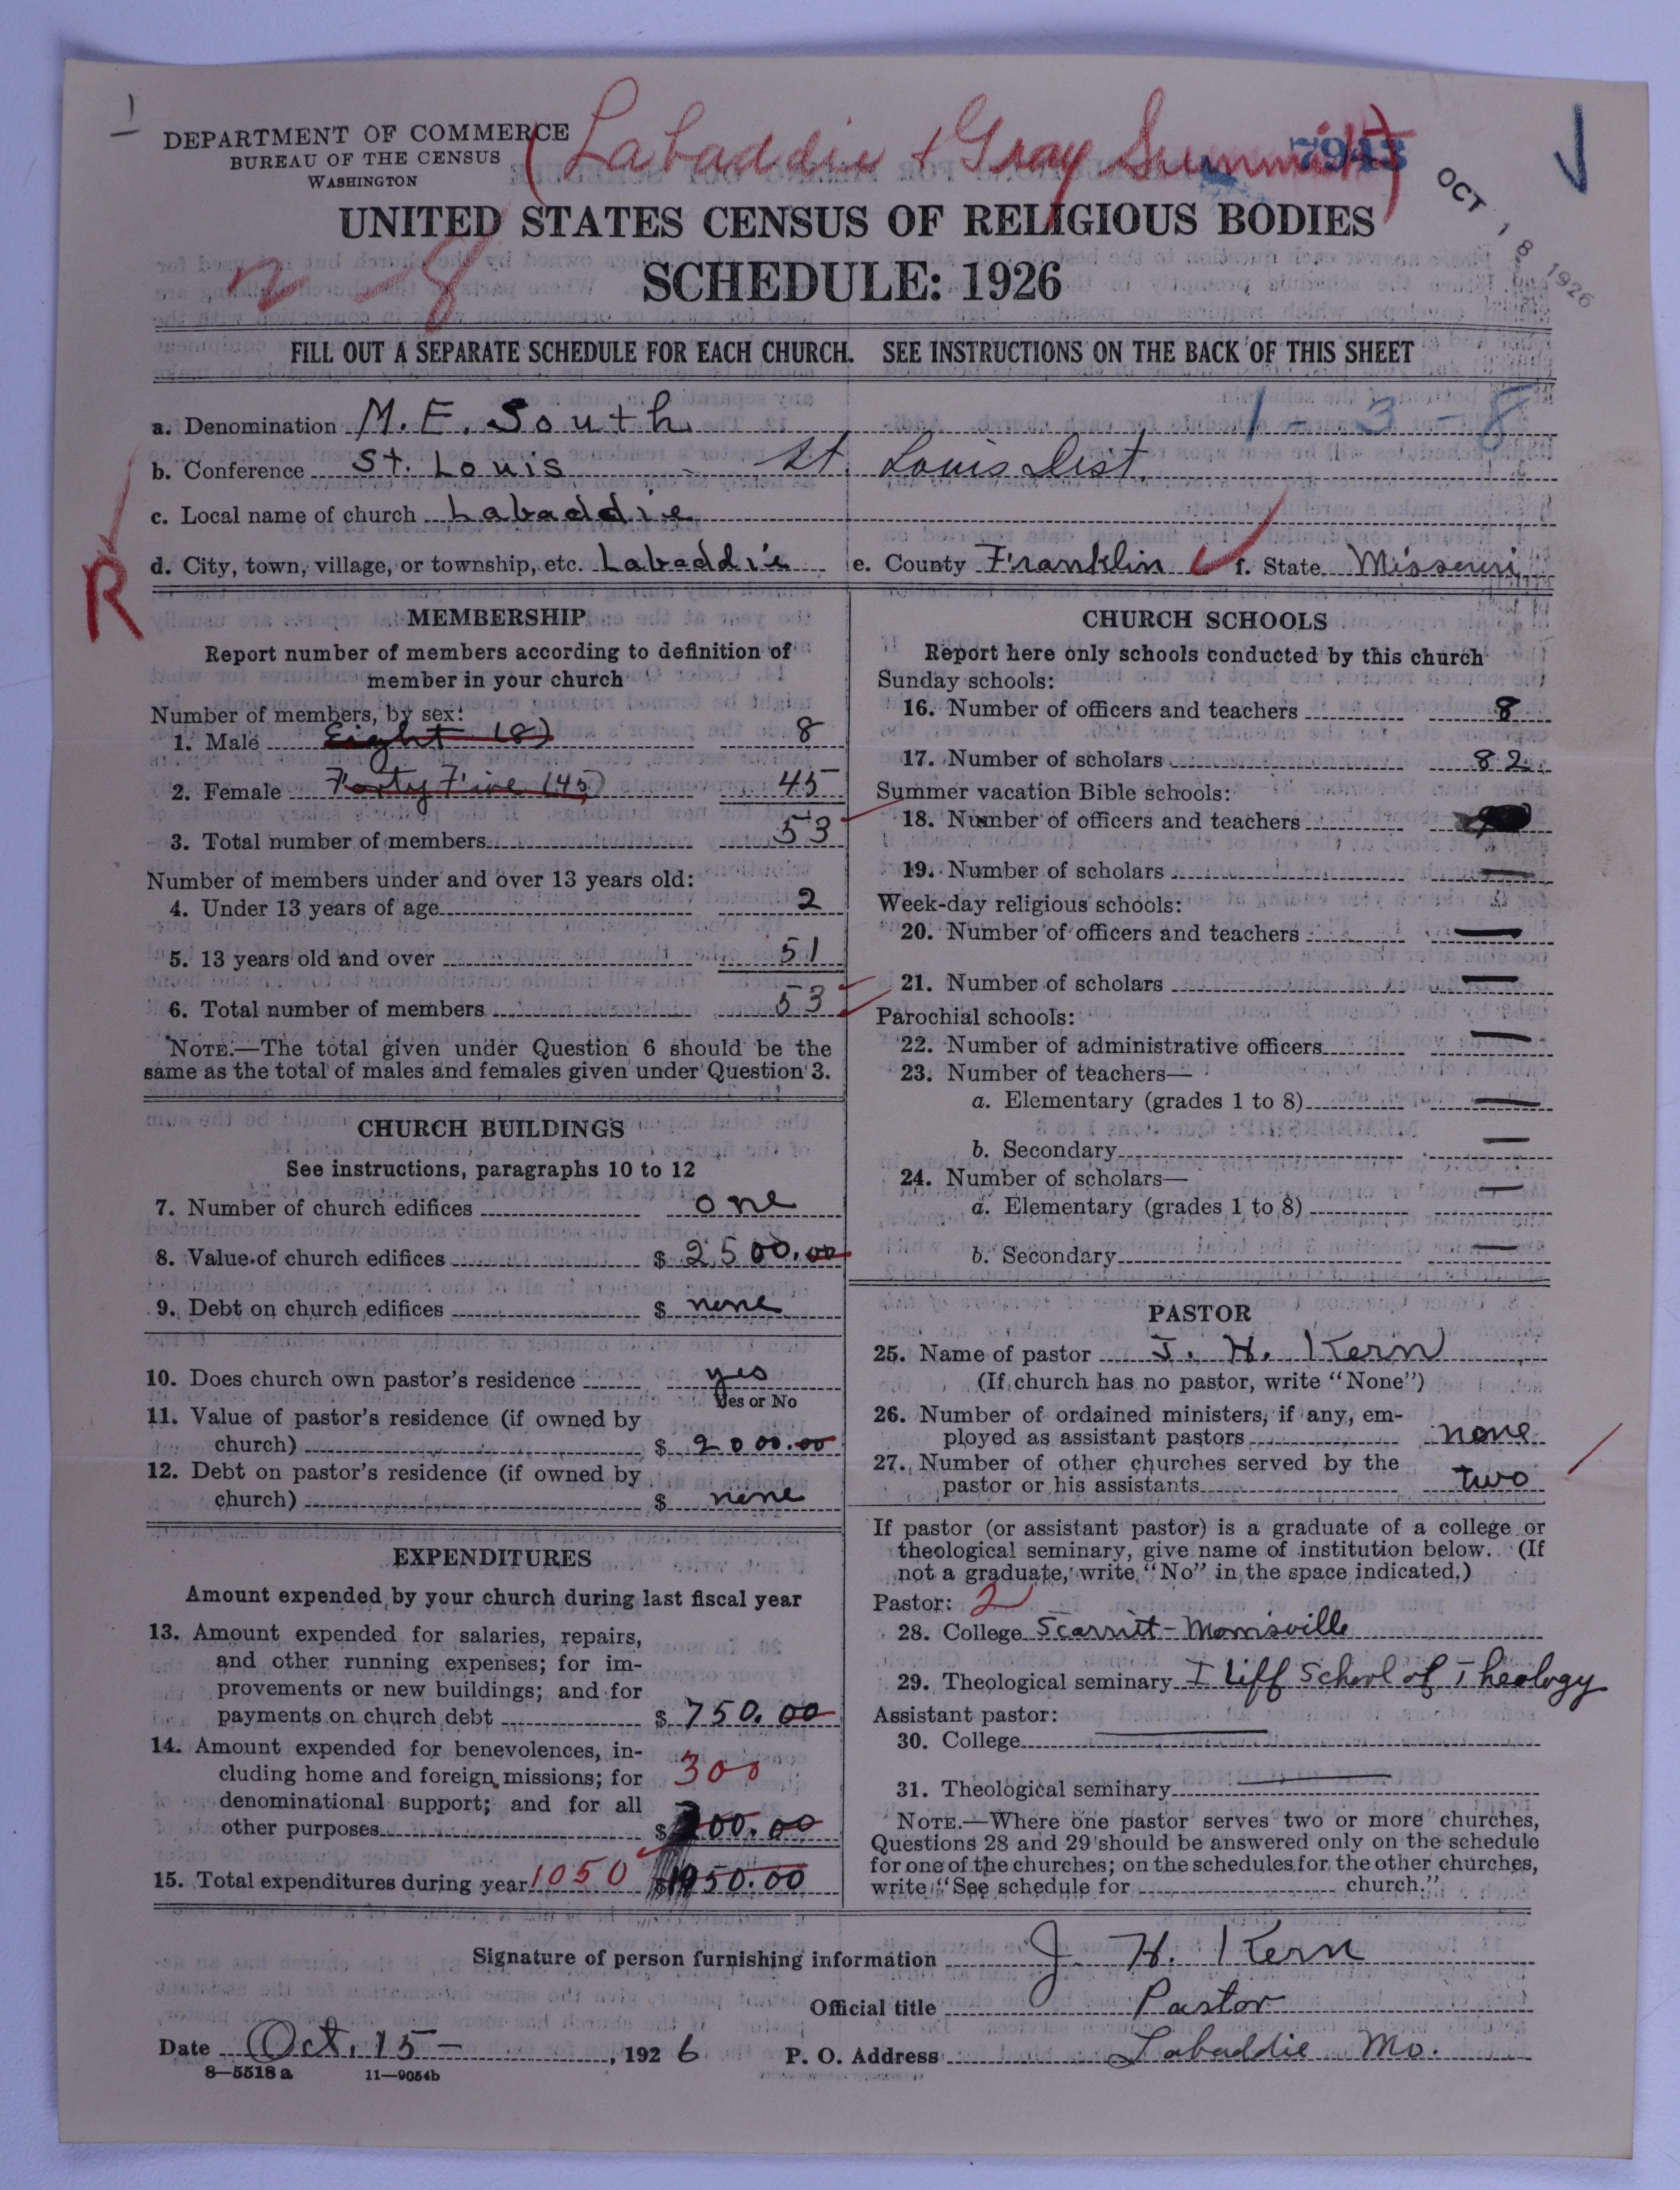 (Labaddie + Gray Summit)
DEPARTMENT OF COMMERCE
BUREAU OF THE CENSUS
WASHINGTON
7943
OCT 18 1926
UNITED STATES CENSUS OF RELIGIOUS BODIES
SCHEDULE: 1926
FILL OUT A SEPARATE SCHEDULE FOR EACH CHURCH. SEE INSTRUCTIONS ON THE BACK OF THIS SHEET
1-3-8
a. Denomination M. E. South
b. Conference St. Louis - St. Louis Dist.
c. Local name of church Labaddie
d. City, town, village, or township, etc. Labaddie e. County Franklin f. State Missouri
R
MEMBERSHIP
Report number of members according to definition of
member in your church
Number of members, by sex:
1. Male Eight (8) 8
2. Female Forty Five (45) 45
3. Total number of members 53
Number of members under and over 13 years old:
4. Under 13 years of age 2
5. 13 years old and over 51
6. Total number of members 53
NOTE.—The total given under Question 6 should be the
same as the total of males and females given under Question 3.
CHURCH BUILDINGS
See instructions, paragraphs 10 to 12
7. Number of church edifices one
8. Value of church edifices $ 2500.00
9. Debt on church edifices $ none
10. Does church own pastor's residence yes
Yes or No
11. Value of pastor's residence (if owned by
church) $ 2000.00
12. Debt on pastor's residence (if owned by
church) $ none
EXPENDITURES
Amount expended by your church during last fiscal year
13. Amount expended for salaries, repairs,
and other running expenses; for im-
provements or new buildings; and for
payments on church debt $ 750.00
14. Amount expended for benevolences, in-
cluding home and foreign missions; for 300
denominational support; and for all
other purposes $ 300.00
15. Total expenditures during year 1050 $ 1050.00
CHURCH SCHOOLS
Report here only schools conducted by this church
Sunday schools:
16. Number of officers and teachers 8
17. Number of scholars 82
Summer vacation Bible schools:
18. Number of officers and teachers
19. Number of scholars —
Week-day religious schools:
20. Number of officers and teachers —
21. Number of scholars —
Parochial schools:
22. Number of administrative officers —
23. Number of teachers—
a. Elementary (grades 1 to 8) —
b. Secondary —
24. Number of scholars—
a. Elementary (grades 1 to 8) —
b. Secondary —
PASTOR
25. Name of pastor J. H. Kern
(If church has no pastor, write "None")
26. Number of ordained ministers, if any, em-
ployed as assistant pastors none
27. Number of other churches served by the
pastor or his assistants two
If pastor (or assistant pastor) is a graduate of a college or
theological seminary, give name of institution below. (If
not a graduate, write "No" in the space indicated.)
Pastor: 2
28. College Scarritt-Morrisville
29. Theological seminary Iliff School of Theology
Assistant pastor:
30. College
31. Theological seminary
NOTE.—Where one pastor serves two or more churches,
Questions 28 and 29 should be answered only on the schedule
for one of the churches; on the schedules for the other churches,
write "See schedule for church."
Signature of person furnishing information J. H. Kern
Official title Pastor
Date Oct. 15 - , 1926 P. O. Address Labaddie Mo.
8—5518 a 11—9054b